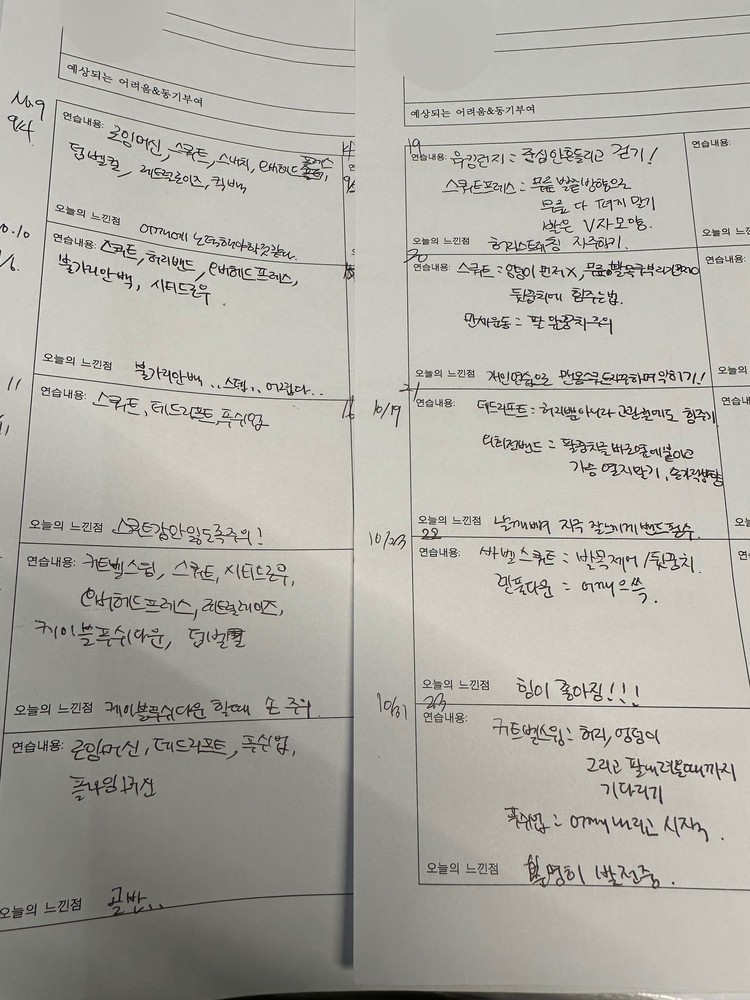 예상되는 어려움&동기부여
No.9
9/4
연습내용: 로잉머신, 스쿼트, 스내치, 오버헤드프레스,
덤벨컬, 레트럴레이즈, 킥백
오늘의 느낀점 어깨에 노력해야할것같다.
0.10
연습내용: 스쿼트, 허리밴드, 오버헤드프레스,
불가리안백, 시티드로우.
오늘의 느낀점 불가리안백.. 스텝.. 어렵다..
11
연습내용: 스쿼트, 데드리프트, 푸쉬업
오늘의 느낀점 스쿼트감안잃도록주의!
연습내용: 케틀벨스윙, 스쿼트, 시티드로우,
오버헤드프레스, 레트럴레이즈,
케이블푸쉬다운, 덤벨컬
오늘의 느낀점 케이블푸쉬다운 할때 손 주의.
연습내용: 로잉머신, 데드리프트, 푸쉬업,
오늘의 느낀점 골반..
예상되는 어려움&동기부여
19
연습내용: 워킹런지: 중심안흔들리고 걷기!
스쿼트프레스: 무릎 발끝방향으로
무릎 다 펴지 말기
발은 V자모양.
오늘의 느낀점 허리스트레칭 자주하기.
20
연습내용: 스쿼트: 엉덩이 먼저X,
뒷꿈치에 힘주는법.
만세운동: 팔 팔꿈치주의
오늘의 느낀점 개인연습으로 맨몸스쿼트 익히기!
21
10/19
연습내용: 데드리프트: 허리뿐아니라 고관절에도 힘주기
외회전밴드: 팔꿈치를 바로옆에붙이고
가슴 열지말기,
오늘의 느낀점 날개뼈 자극 잘느끼게 밴드필수.
10/23
22
연습내용: 바벨스쿼트: 발목제어/뒷꿈치.
렛풀다운: 어깨으쓱.
오늘의 느낀점 힘이 좋아짐!!!
10/31
23
연습내용: 케틀벨스윙: 허리, 엉덩이
그리고 팔내려올때까지
기다리기
푸쉬업: 어깨내리고 시작.
오늘의 느낀점 분명히 발전중.
연습내용:
연습내용: